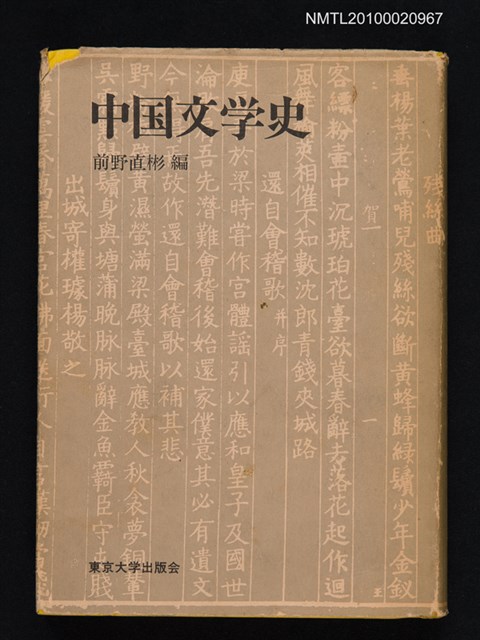 NMTL20100020967
中国文学史
前野直彬 編
東京大学出版会
殘絲曲
垂楊葉老鶯哺兒殘絲欲斷黃蜂歸綠鬢少年金釵
客縹粉壺中沉琥珀花臺欲暮春辭去落花起作迴
風舞榆莢相催不知數沈郎青錢夾城路
還自會稽歌 并序
庾 於梁時嘗作宮體謠引以應和皇子及國世
淪 吾先潛難會稽後始還家僕意其必有遺文
今 故作還自會稽歌以補其悲
野 黃濕螢滿梁殿臺城應教人秋衾夢銅輦
吳 歸 身與塘蒲晚脉脉辭金魚覊臣守屯賤
出城寄權璩楊敬之